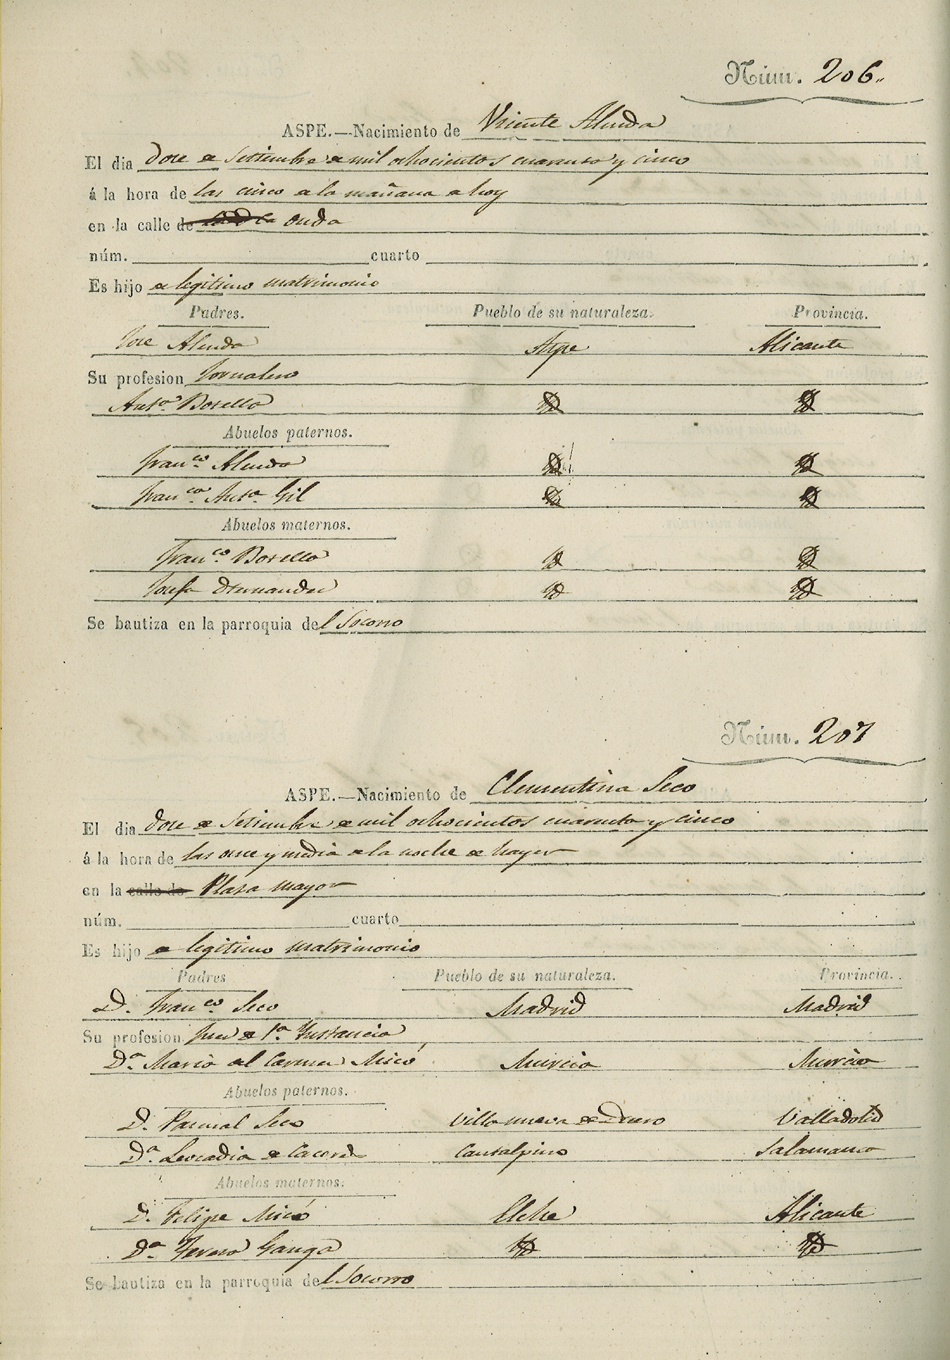 Núm. 206.
ASPE.—Nacimiento de Vicente Alenda
El dia doce de Setiembre de mil ochocientos cuarenta y cinco
á la hora de las cinco de la mañana de hoy
en la calle de Onda
núm. cuarto
Es hijo de legitimo matrimonio
Padres. Pueblo de su naturaleza. Provincia.
Jose Alenda Aspe Alicante
Su profesion Jornalero
Antª Botella Id Id
Abuelos paternos.
Franco. Alenda Id Id
Franca. Antª Gil Id Id
Abuelos maternos.
Franco. Botella Id Id
Josefa Hernandez Id Id
Se bautiza en la parroquia del Socorro
Núm. 207
ASPE.—Nacimiento de Clementina Seco
El dia doce de Setiembre de mil ochocientos cuarenta y cinco
á la hora de las once y media de la noche de hayer
en la calle de Plasa mayor
núm. cuarto
Es hijo de legitimo matrimonio
Padres Pueblo de su naturaleza. Provincia.
D. Franco Seco Madrid Madrid
Su profesion Juez de 1ª Instancia
Dª Maria del Carmen Micó Murcia Murcia
Abuelos paternos.
D. Pascual Seco Villanueva de Duero Valladolid
Dª Leocadia de Cantalpino Salamanca
Abuelos maternos.
D. Felipe Micó Elche Alicante
Dª Teresa Ganga Id Id
Se bautiza en la parroquia del Socorro